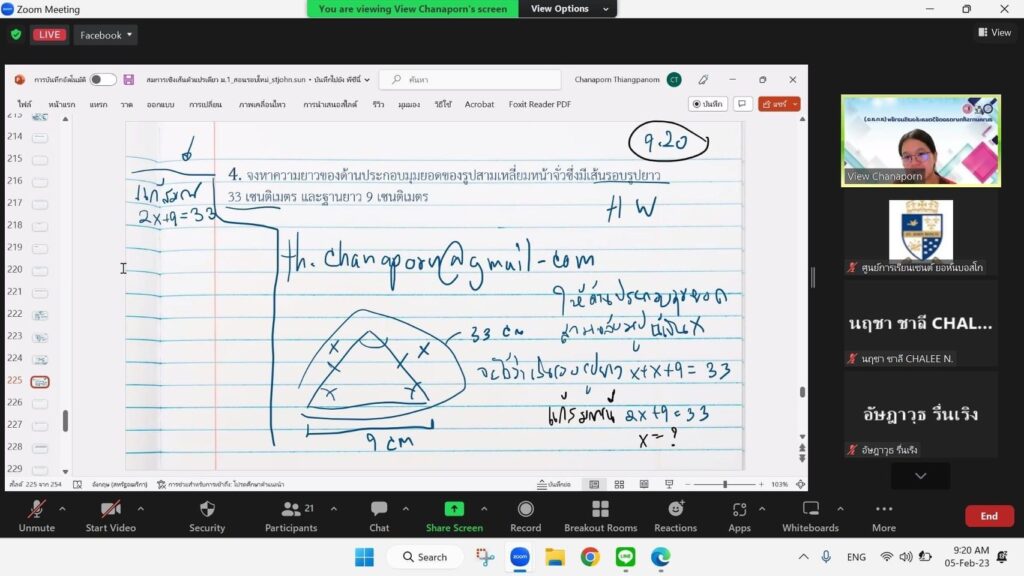 Zoom Meeting
You are viewing View Chanaporn's screen
View Options
LIVE
Facebook
View
การบันทึกอัตโนมัติ
สมการเชิงเส้นตัวแปรเดียว ม.1_สอนรอบใหม่_stjohn.sun • บันทึกไปยัง พีซีนี้
ค้นหา
Chanaporn Thiangpanom
CT
ไฟล์ หน้าแรก แทรก วาด ออกแบบ การเปลี่ยน ภาพเคลื่อนไหว การนำเสนอสไลด์ รีวิว มุมมอง วิธีใช้ Acrobat Foxit Reader PDF
บันทึก
แชร์
213
214
215
216
217
218
219
220
221
222
223
224
225
226
227
228
229
9.20
4. จงหาความยาวของด้านประกอบมุมยอดของรูปสามเหลี่ยมหน้าจั่วซึ่งมีเส้นรอบรูปยาว
33 เซนติเมตร และฐานยาว 9 เซนติเมตร
แก้สมการ
2x+9=33
H W
th.chanaporn@gmail-com
ให้ด้านประกอบมุมยอด
x
33 cm
x x x x
x x
จะได้ว่าเส้นรอบรูปยาว x+x+9 = 33
แก้สมการ 2x+9=33
x = ?
9 cm
สไลด์ 225 จาก 254
อังกฤษ (สหรัฐอเมริกา)
การช่วยสำหรับการเข้าถึง: โปรดศึกษาคำแนะนำ
บันทึกย่อ
103%
View Chanaporn
ศูนย์การเรียนเซนต์ ยอห์นบอสโก
นฤชา ชาลี CHAL...
นฤชา ชาลี CHALEE N.
อัษฎาวุธ รื่นเริง
อัษฎาวุธ รื่นเริง
Unmute
Start Video
Security
Participants
21
Chat
Share Screen
Record
Breakout Rooms
Reactions
Apps
Whiteboards
More
End
Search
zoom
LINE
ENG
9:20 AM
05-Feb-23